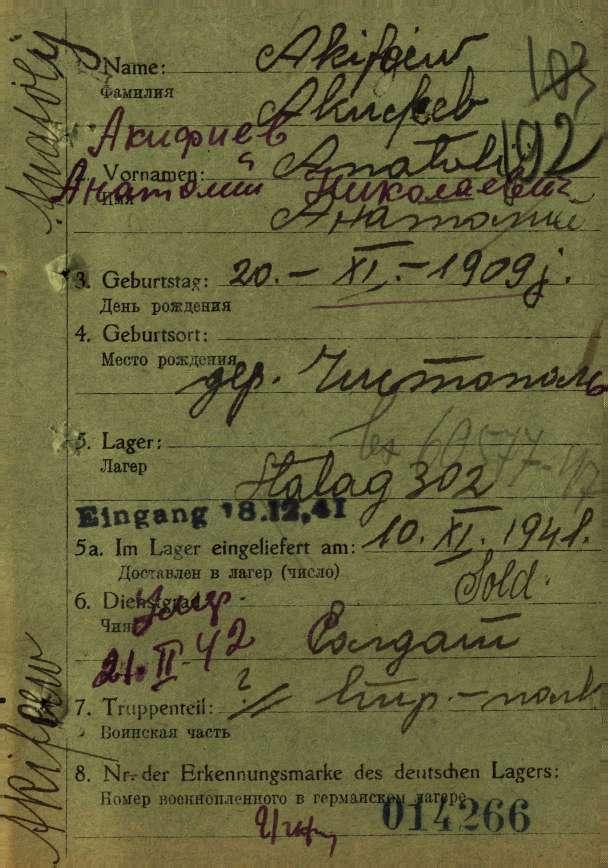 Anatolij
Akifiew
1. Name: Akifiew
Фамилия
Акифиев
183
Акифиев
192
Vornamen: Anatolij
Анатолий Николаевич
Имя
Анатолий
3. Geburtstag: 20.– XI.–1909 j.
День рождения
4. Geburtsort:
Место рождения
дер. Чистополь
5. Lager:
Лагер
Stalag 302
Eingang 18.12.41
5a. Im Lager eingeliefert am: 10. XI. 1941.
Доставлен в лагер (число)
Sold.
6. Dienstgrad:
Чин
Солдат
21.II-42
7. Truppenteil: ?
Воинская часть
8. Nr. der Erkennungsmarke des deutschen Lagers:
Номер военнопленного в германском лагере
014266